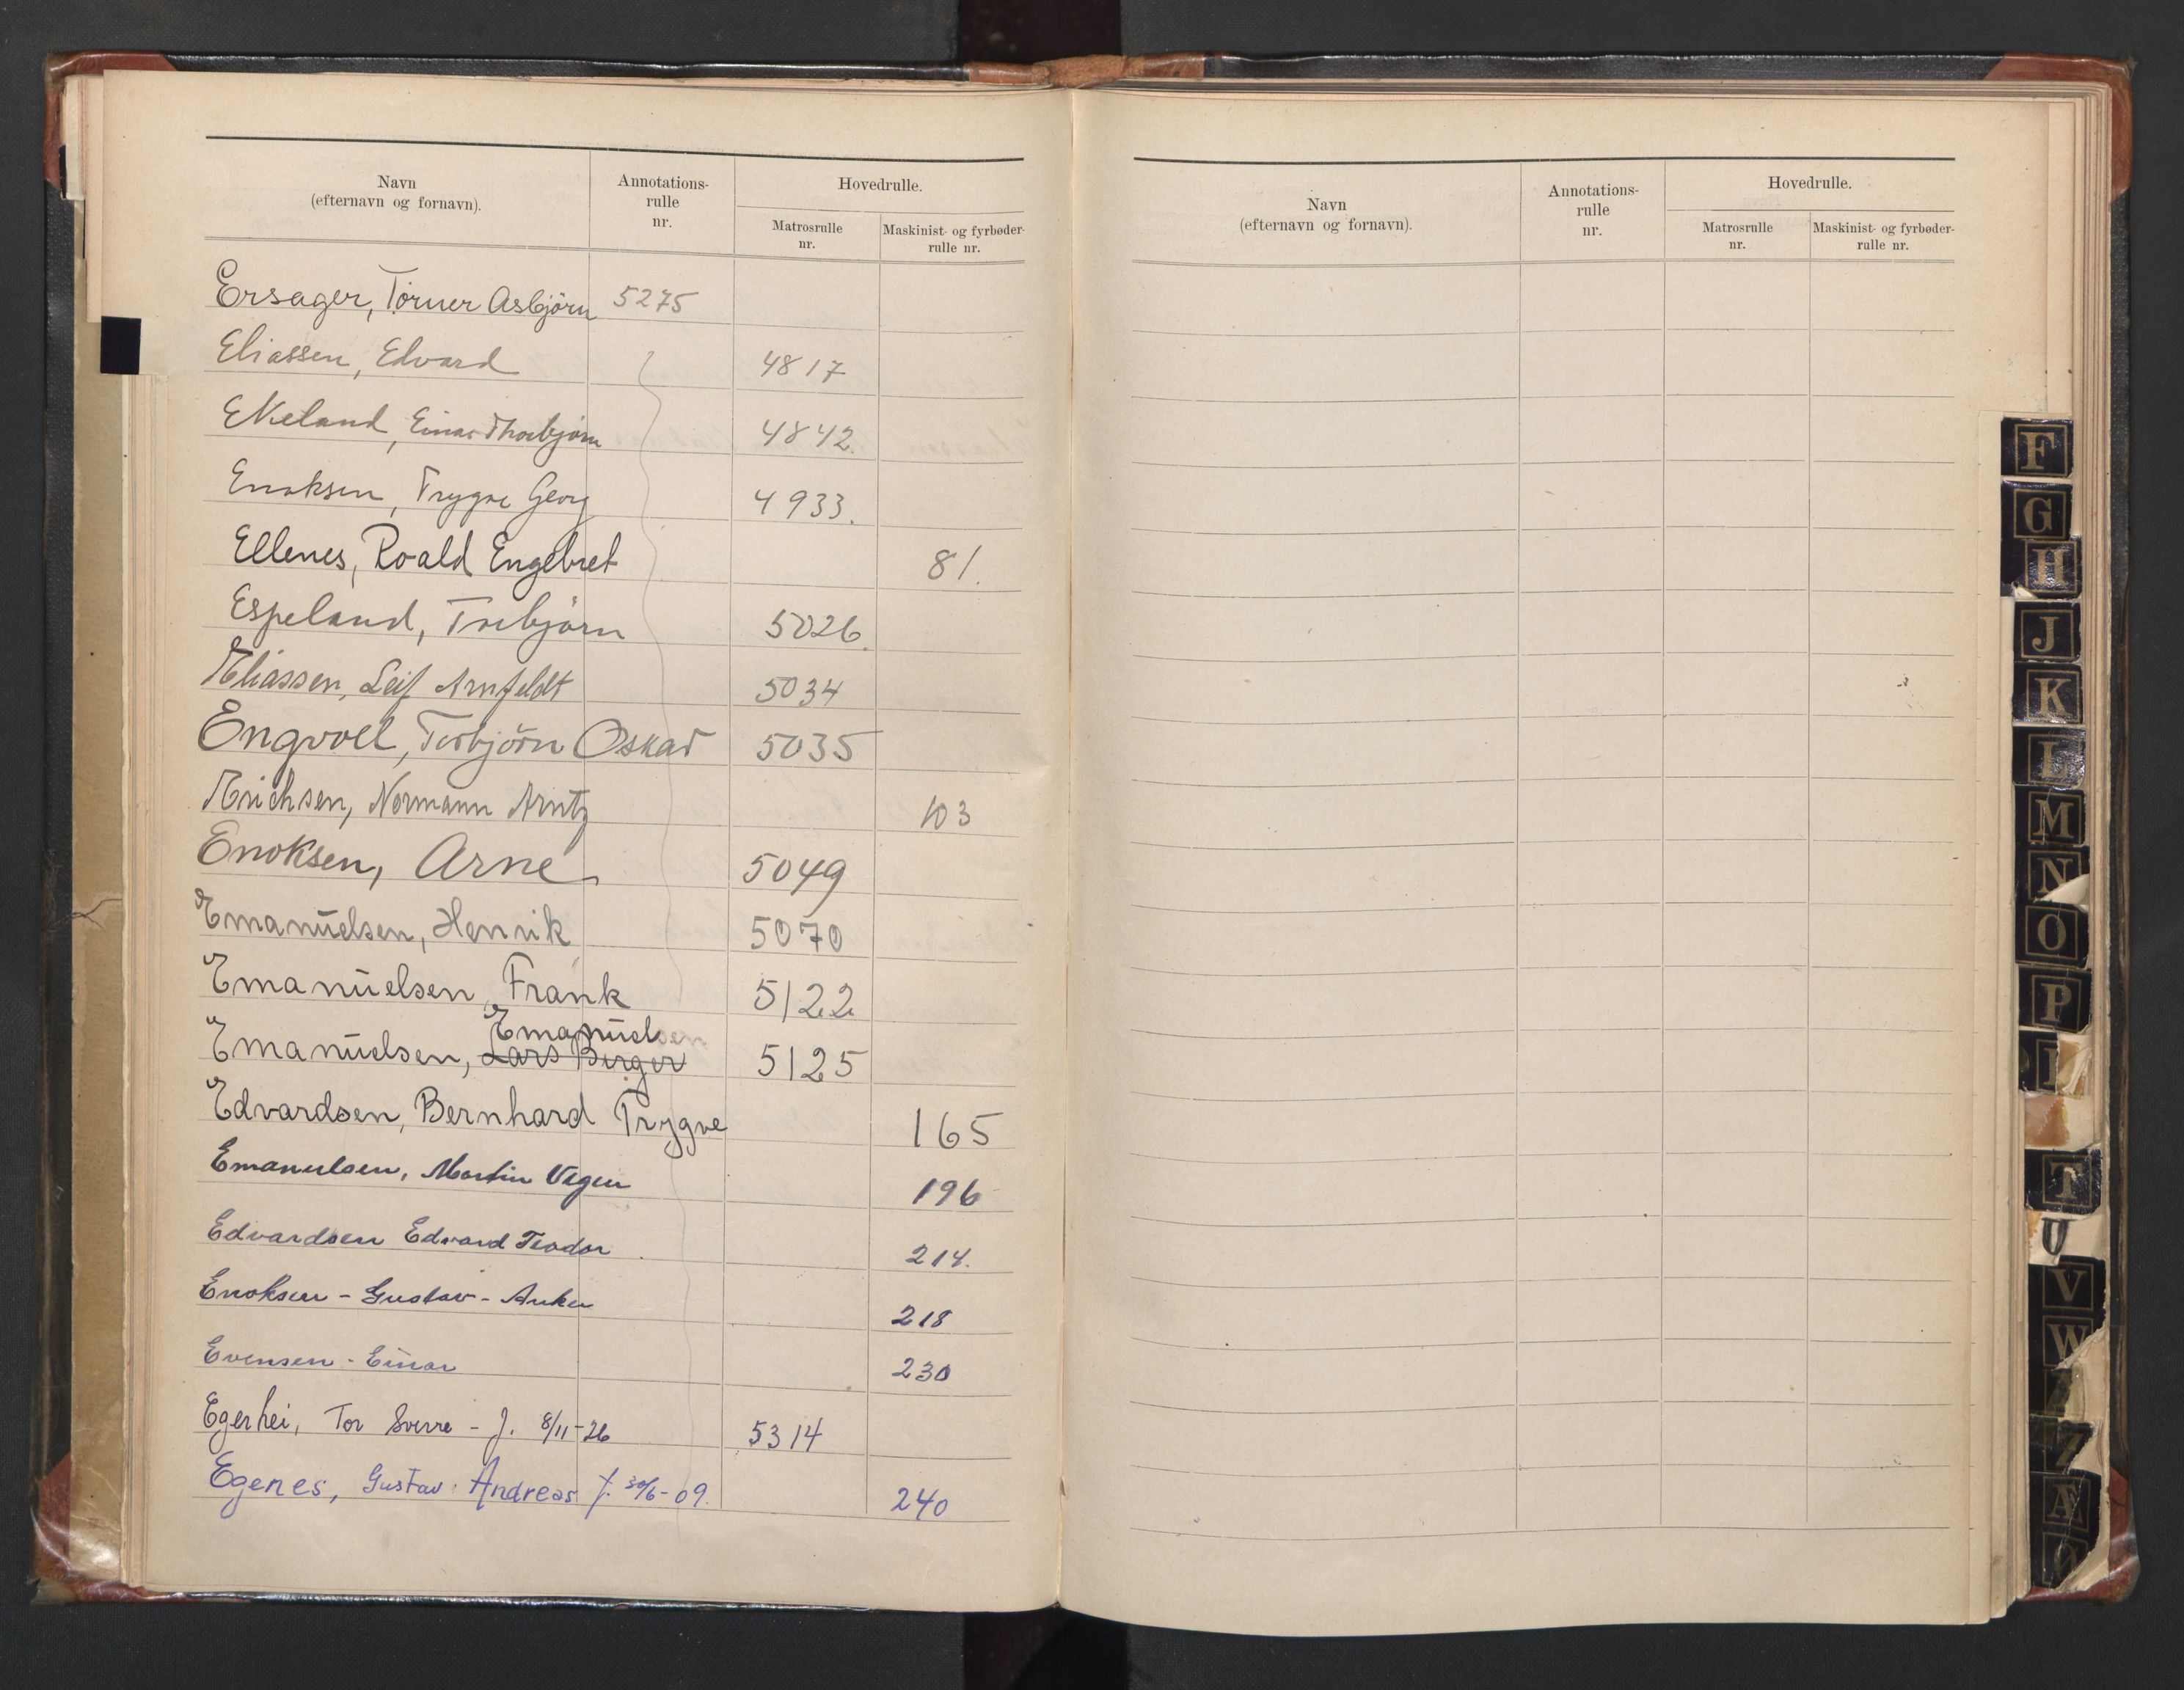 Navn
(efternavn og fornavn).
Annotations-
rulle
nr.
Hovedrulle.
Matrosrulle
nr.
Maskinist- og fyrbøder-
rulle nr.
Ersager, Törner Asbjörn 5275
Eliassen, Edvard 4817
Ekeland, Einar Thorbjørn 4842.
Enoksen, Trygve Georg 4933.
Ellenes, Roald Engebret 81.
Espeland, Torbjörn 5026.
Eliassen, Leif Arnfeldt 5034
Engvoll, Torbjörn Oskar 5035
Erichsen, Normann Arntz 103
Enoksen, Arne 5049
Emanuelsen, Henrik 5070
Emanuelsen, Frank 5122
Emanuel
Emanuelsen, Lars Birger 5125
Edvardsen, Bernhard Trygve 165
Emanuelsen, Martin 196
Edvardsen Edvard Teodor 214.
Enoksen - Gustav - Anker 218
Evensen - Einar 230
Egerhei, Tor Sverre - f. 8/11-26 5314
Egenes, Gustav Andreas f. 30/6-09. 240
Navn
(efternavn og fornavn).
Annotations-
rulle
nr.
Hovedrulle.
Matrosrulle
nr.
Maskinist- og fyrbøder-
rulle nr.
F
G
H
J
K
L
M
N
O
P
T
U
V
W
Z
Æ
Ø